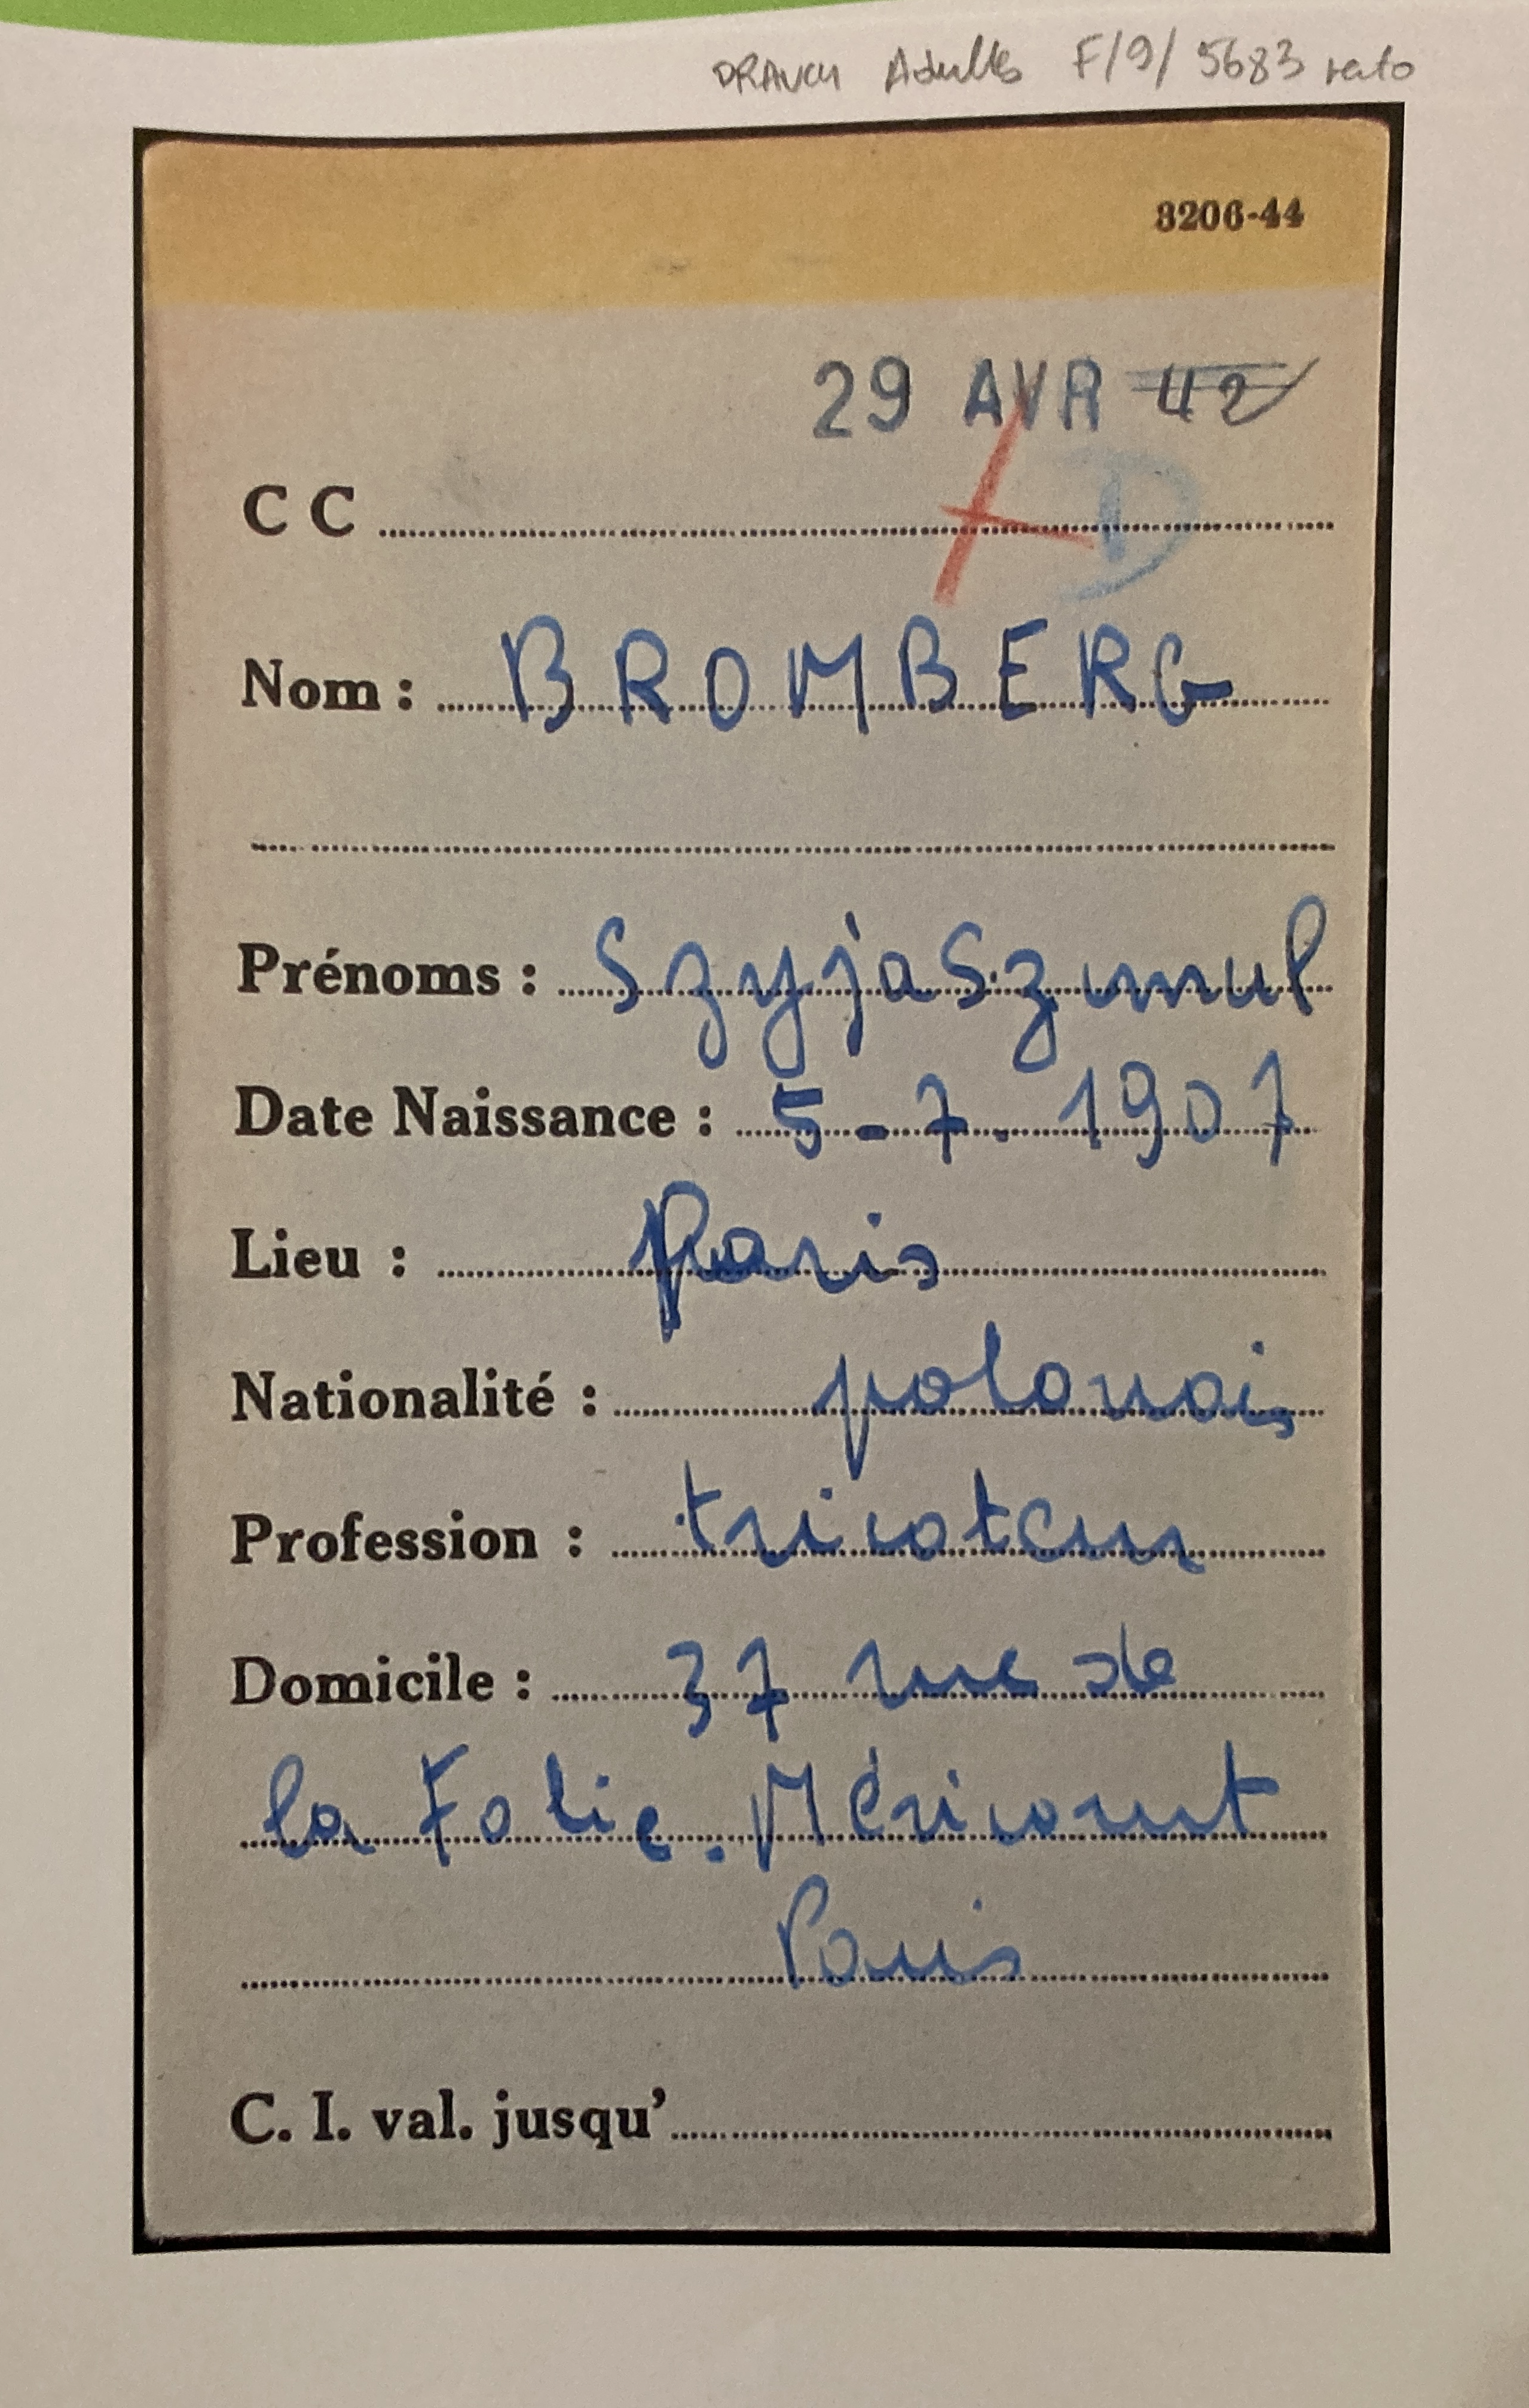 DRANCY Adultes F/9/5683 recto
3206-44
29 AVR 42
D
C C
Nom : BROMBERG
Prénoms : Szyja Szmul
Date Naissance : 5-7.1907
Lieu : Paris
Nationalité : polonais
Profession : tricoteur
Domicile : 37 rue de
la Folie-Méricourt
Paris
C. I. val. jusqu'